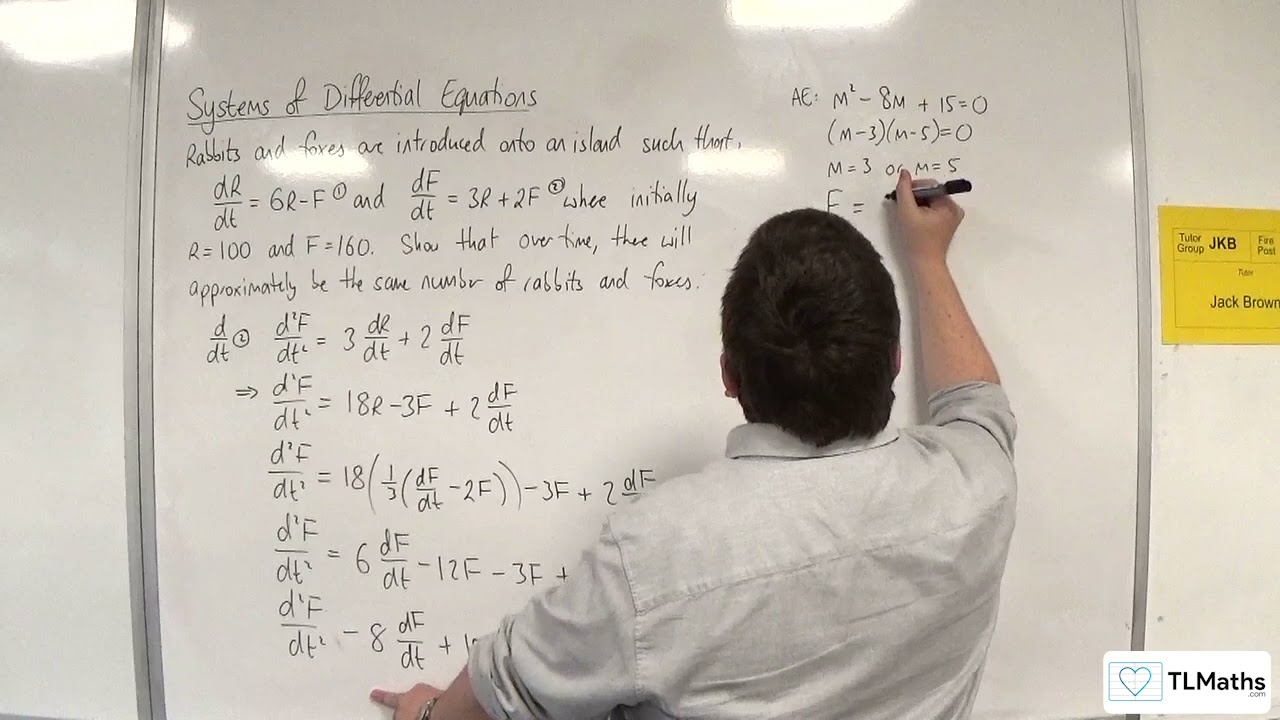 Systems of Differential Equations
Rabbits and foxes are introduced onto an island such that,
dR/dt = 6R-F ① and dF/dt = 3R+2F ② where initially
R=100 and F=160. Show that over time, there will
approximately be the same number of rabbits and foxes.
d/dt ② d²F/dt² = 3 dR/dt + 2 dF/dt
⇒ d²F/dt² = 18R-3F + 2 dF/dt
d²F/dt² = 18(1/3(dF/dt -2F)) -3F + 2 dF
d²F/dt² = 6 dF/dt -12F -3F +
d²F/dt² - 8 dF/dt + 1
AE: m² - 8m + 15=0
(m-3)(m-5)=0
m=3 or m=5
F =
Tutor Group JKB Fire Post
Tutor
Jack Brown
TLMaths
.com